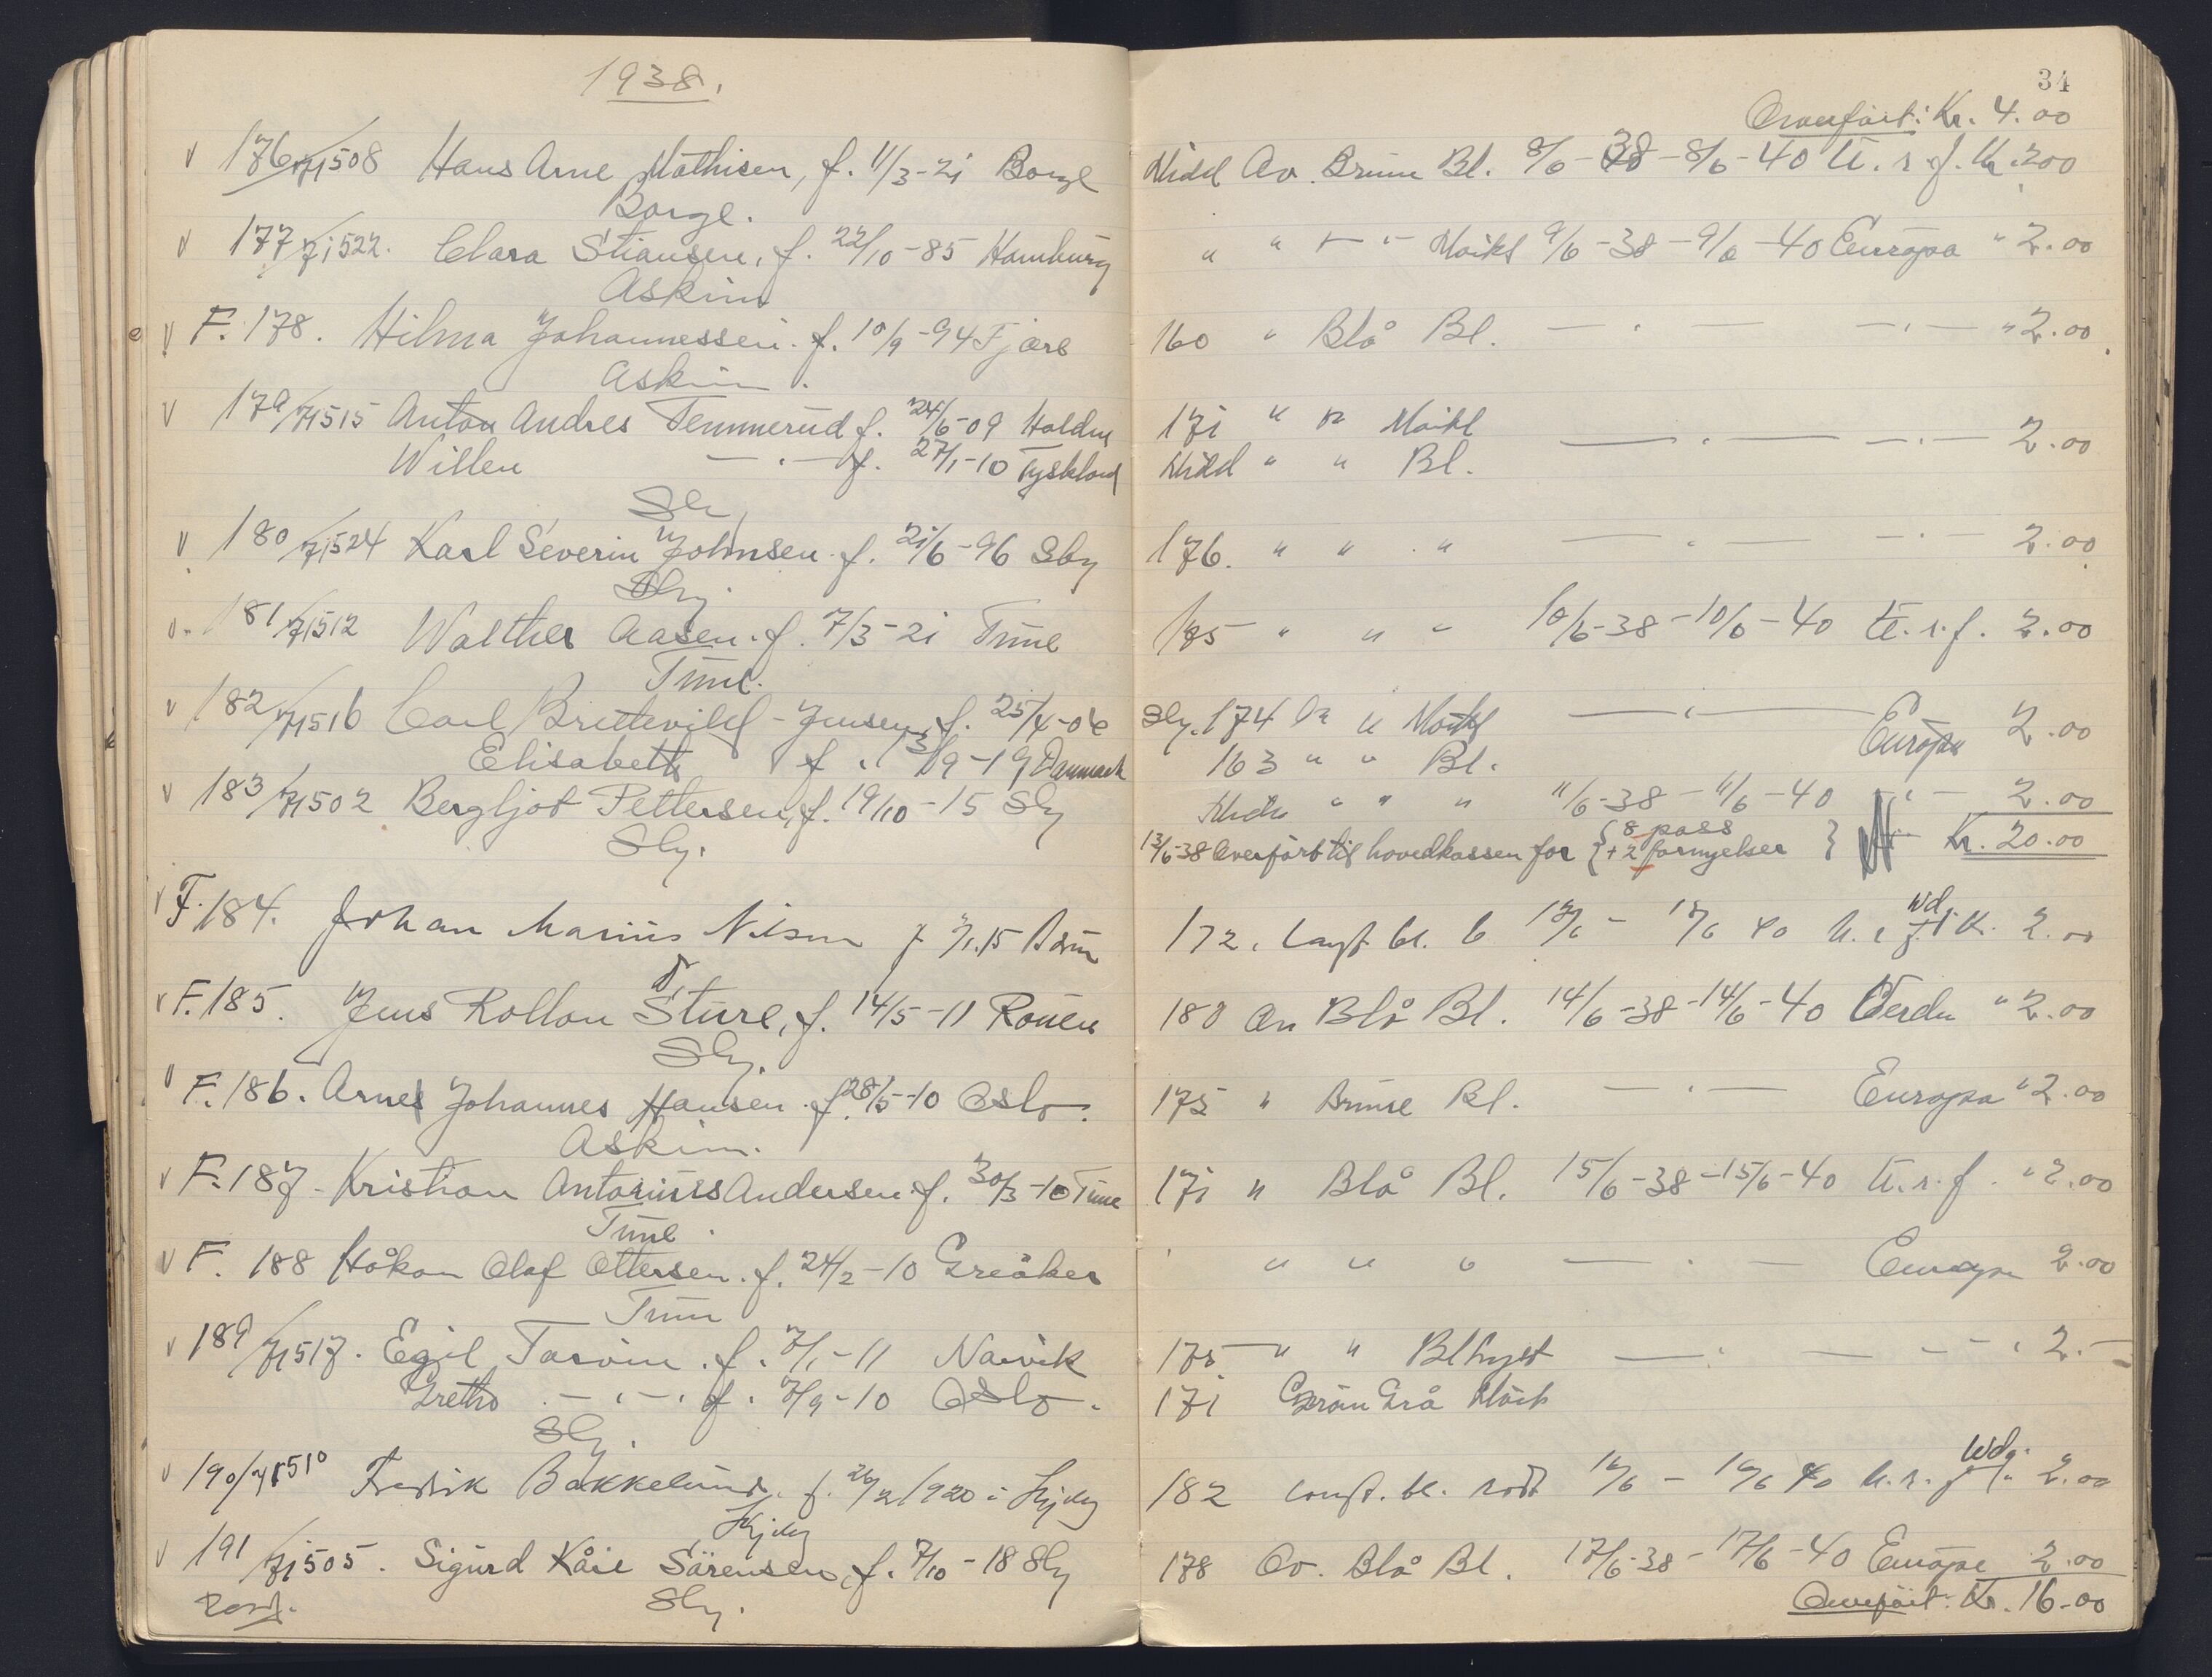 1938.
176/71508 Hans Arne Mathisen, f. 11/3-21 Borge
Borge.
177/71522. Clara Stiansen, f. 22/10-85 Hamburg
Askim
F. 178. Hilma Johannessen. f. 10/9-94 Fjære
Askim.
179/71515 Anton Andres Temmerud f. 24/6-09 Halden
Willen —.— f. 27/1-10 Tyskland
180/71524 Karl Severin Johnsen. f. 21/6-96 Sby
Sby.
181/71512 Walther Aasen. f. 7/3-21 Tune
Tune.
182/71516 Carl Jensen, f. 25/4-06
Elisabeth f. 9-19 Danmark
183/71502 Bergljot Pettersen, f. 19/10-15 Sby
Sby.
F. 184. Johan Marius Nilsen f 1.15
F. 185. Jens Rollon Sture, f. 14/5-11 Rouen
Sby.
F. 186. Arne Johannes Hansen. f. 28/5-10 Oslo.
Askim.
F. 187. Kristian Antonius Andersen. f. 30/3-10 Tune
Tune.
F. 188 Håkon Olaf Ottersen. f. 24/2-10 Greåker
Tune
189/71517. Egil f. 7/1-11 Narvik
Grethe —.— f. 7/9-10 Oslo.
Sby.
190/71510 Fredrik Bakkelund. f. 26/2 1920 i
191/71505. Sigurd Kåre Sörensen, f. 7/10-18 Sby
Sby.
34
Overført: Kr. 4.00
Midd Ov. Brune Bl. 8/6-38-8/6-40 U.s.f. Kr. 2.00
" " " Mörkt 9/6-38-9/6-40 Europa " 2.00
160 " Blå Bl. —.— —.— " 2.00
171 " " Mörkt —.— —.— 2.00
Midd " " Bl.
176. " " " —.— —.— 2.00
185 " " " 10/6-38-10/6-40 U.s.f. 2.00
Sby. 174 " " Mörkt —.— Europa 2.00
163 " " Bl.
" " " 11/6-38-11/6-40 —.— 2.00
13/6-38 Overført til hovedkassen for { 8 pass + 2 fornyelser } Kr. 20.00
172. Langt bl. b 40 Kr. 2.00
180 Ov Blå Bl. 14/6-38-14/6-40 Verden " 2.00
175 " Brune Bl. —.— Europa " 2.00
171 " Blå Bl. 15/6-38-15/6-40 U.s.f. " 2.00
" " " —.— Europa 2.00
175 " " Bl lyst —.— — - " 2.-
171 Grå Mörk
182 bl. 40 2.00
178 Ov. Blå Bl. 17/6-38-17/6-40 Europa 2.00
Overført: Kr. 16.00